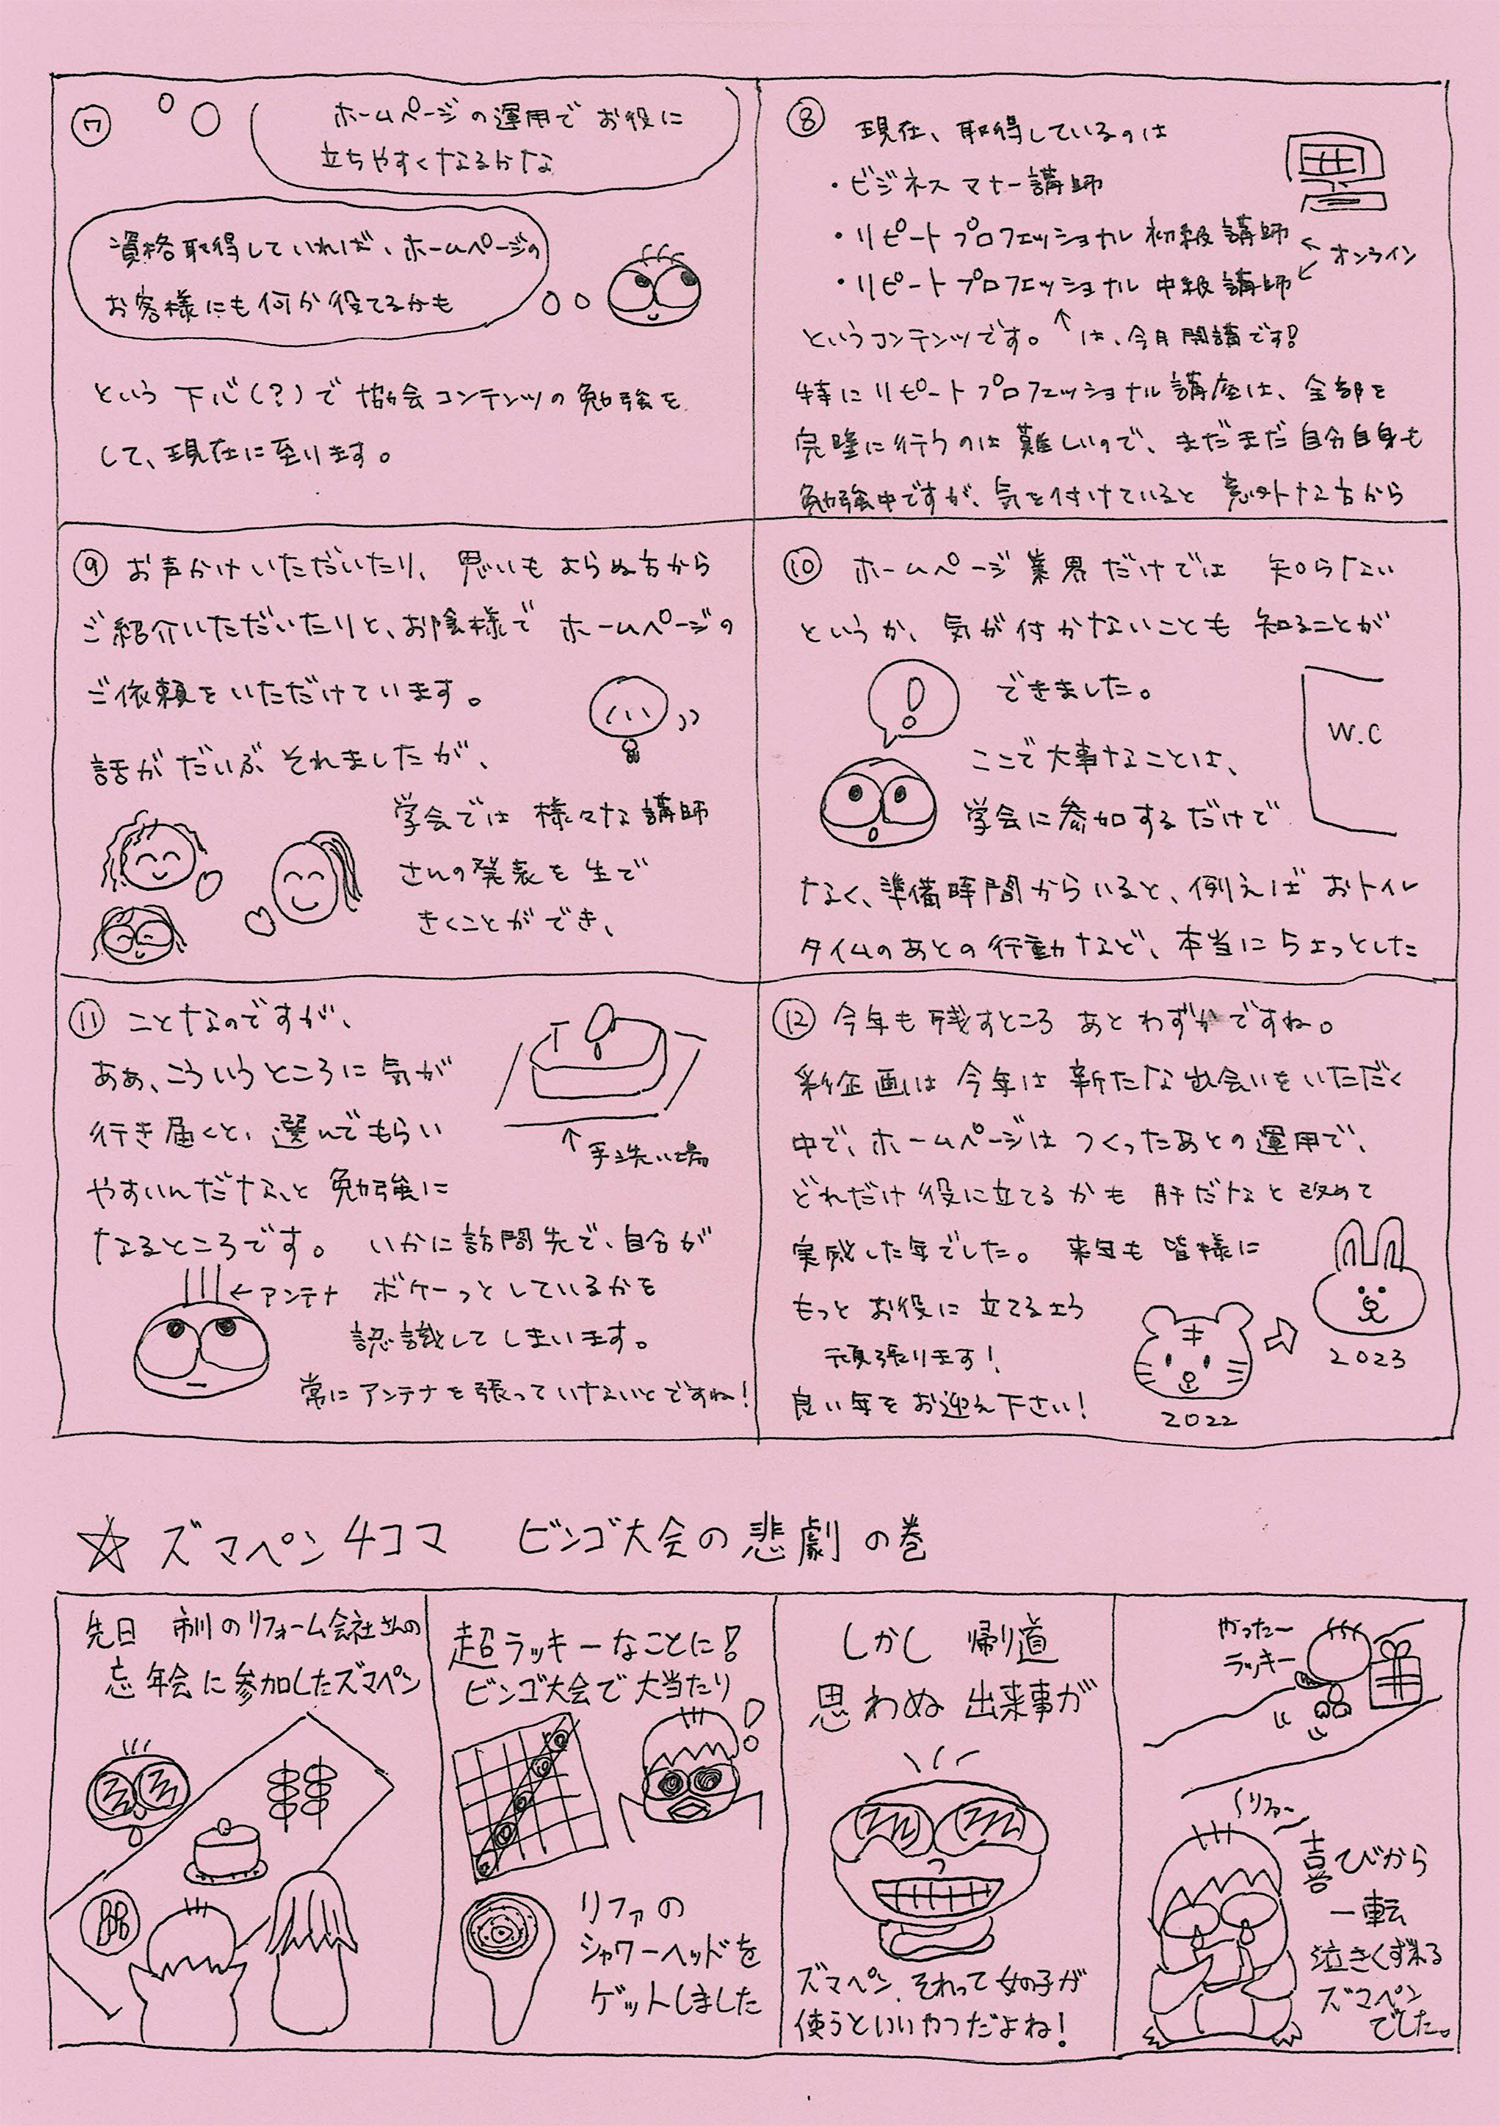 ⑦
ホームページの運用でお役に
立ちやすくなるかな
資格取得していれば、ホームページの
お客様にも何か役てるかも
という下心(?)で協会コンテンツの勉強を
して、現在に至ります。
⑧ 現在、取得しているのは
・ビジネスマナー講師
・リピートプロフェッショナル初級講師
・リピートプロフェッショナル中級講師
←オンライン
というコンテンツです。↑は、今月開講です!
特にリピートプロフェッショナル講座は、全部を
完璧に行うのは難しいので、まだまだ自分自身も
勉強中ですが、気を付けていると意外な方から
⑨ お声かけいただいたり、思いもよらぬ方から
ご紹介いただいたりと、お陰様でホームページの
ご依頼をいただけています。
話がだいぶそれましたが、
学会では様々な講師
さんの発表を生で
きくことができ、
⑩ ホームページ業界だけでは知らない
というか、気が付かないことも知ることが
できました。
!
W.C
ここで大事なことは、
学会に参加するだけで
なく、準備時間からいると、例えばおトイレ
タイムのあとの行動など、本当にちょっとした
⑪ ことなのですが、
ああ、こういうところに気が
行き届くと、選んでもらい
やすいんだな、と勉強に
なるところです。いかに訪問先で、自分が
ボケーっとしているかを
認識してしまいます。
常にアンテナを張っていけないとですね!
↑手洗い場
←アンテナ
⑫ 今年も残すところあとわずかですね。
彩企画は今年は新たな出会いをいただく
中で、ホームページはつくったあとの運用で、
どれだけ役に立てるかも肝だなと改めて
実感した年でした。来年も皆様に
もっとお役に立てるよう
頑張ります!
良い年をお迎え下さい!
2022
2023
☆ズマペン4コマ ビンゴ大会の悲劇の巻
先日 市川のリフォーム会社さんの
忘年会に参加したズマペン
超ラッキーなことに!
ビンゴ大会で大当たり
リファの
シャワーヘッドを
ゲットしました
しかし 帰り道
思わぬ出来事が
ズマペン、それって女の子が
使うといいやつだよね!
やったー
ラッキー
リファー
喜びから
一転
泣きくずれる
ズマペン
でした。